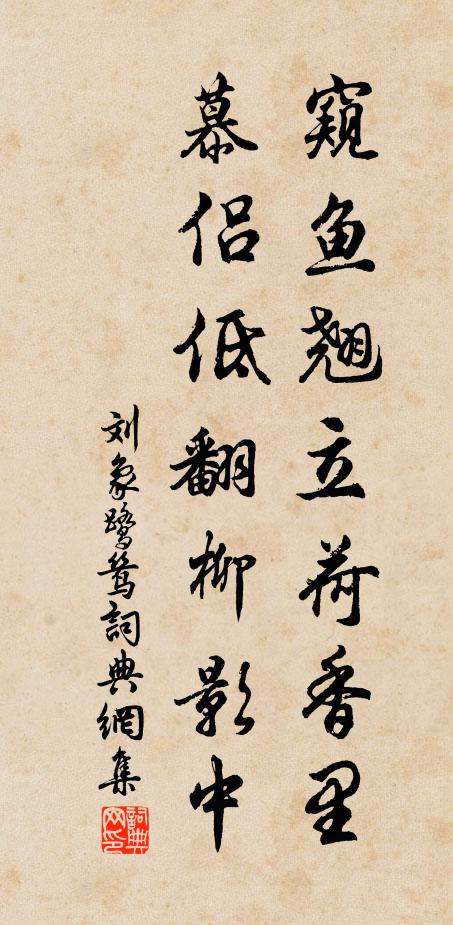 窥鱼翘立荷香里
慕侣低翻柳影中
刘象鹭鸶詞典網集
詞典网印